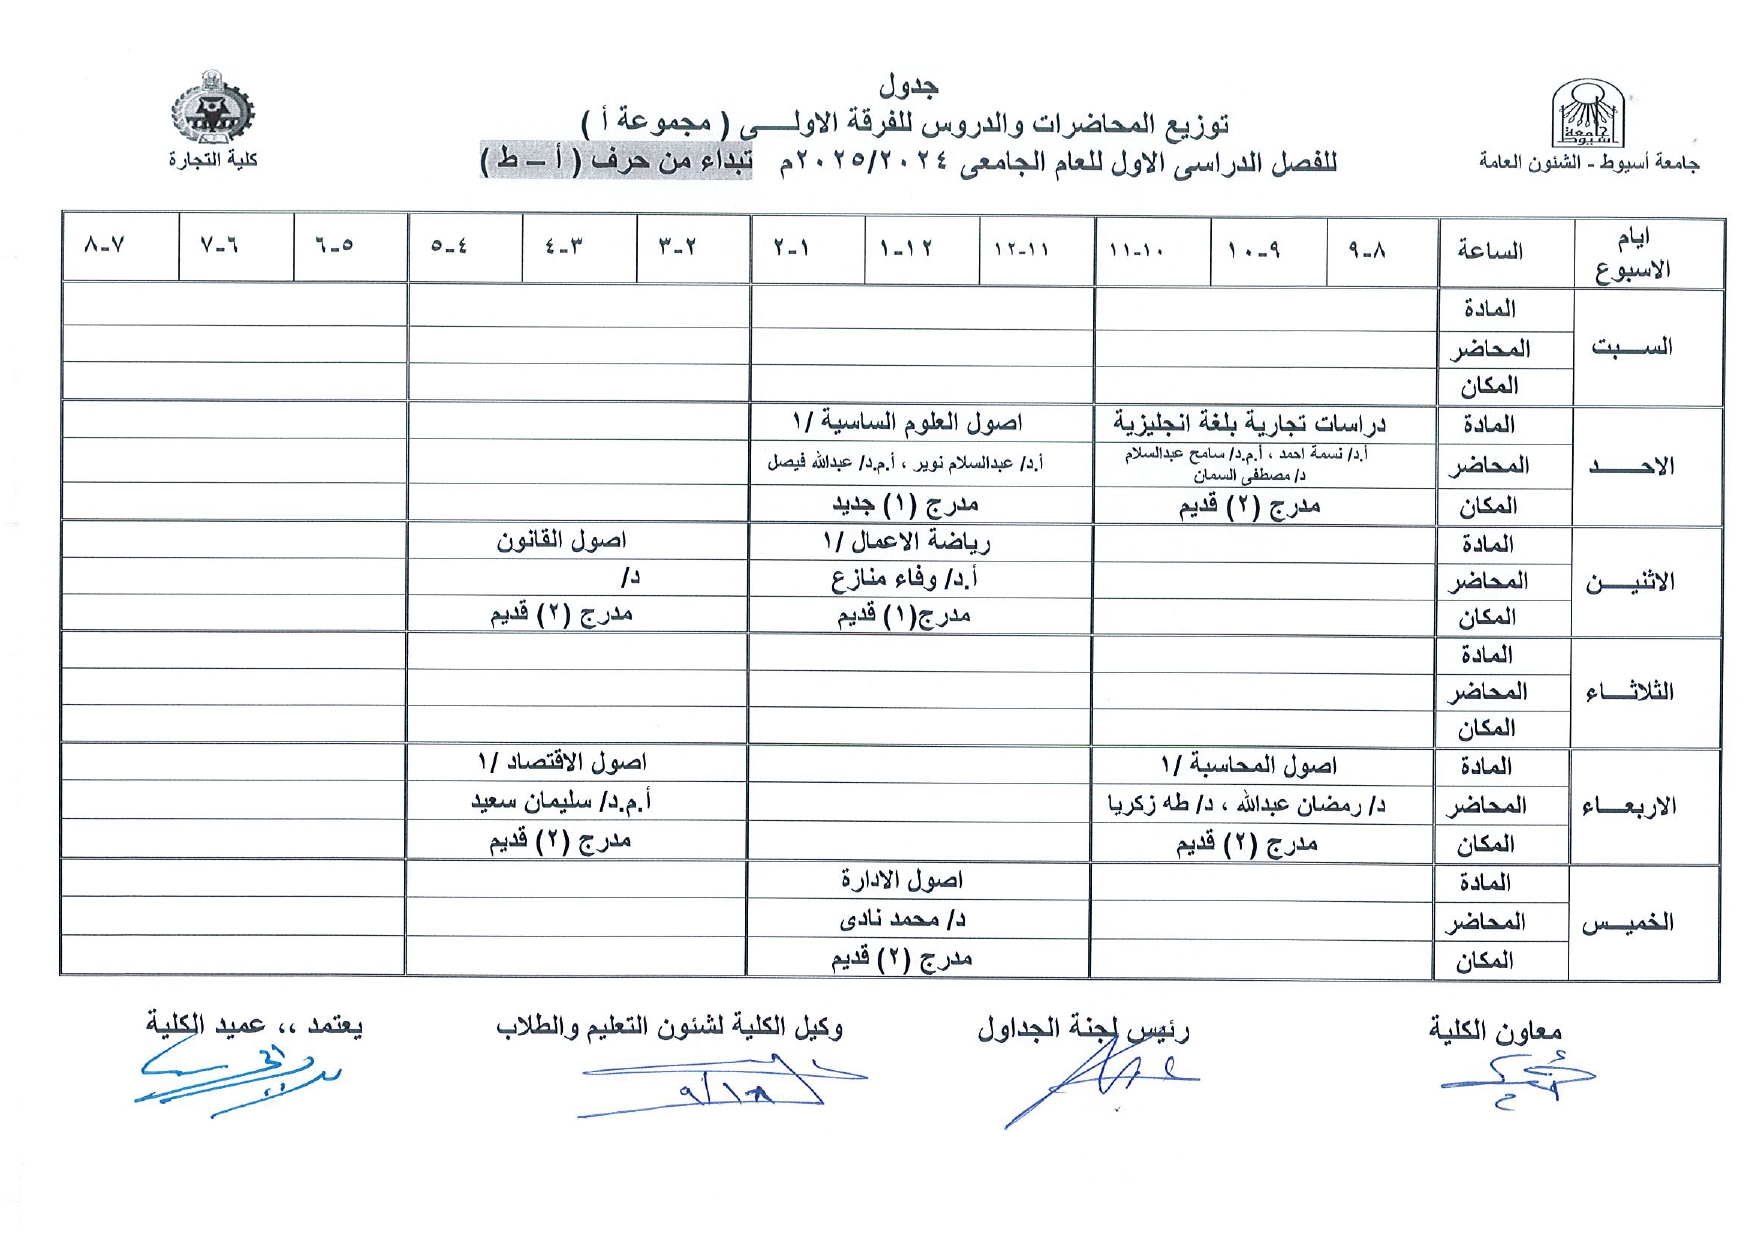 جدول
توزيع المحاضرات والدروس للفرقة الاولـــى ( مجموعة أ )
للفصل الدراسى الاول للعام الجامعى ٢٠٢٥/٢٠٢٤م تبداء من حرف ( أ – ط )
جامعة أسيوط
جامعة أسيوط - الشئون العامة
كلية التجارة
ايام الاسبوع الساعة ٨-٩ ٩-١٠ ١٠-١١ ١١-١٢ ١٢-١ ١-٢ ٢-٣ ٣-٤ ٤-٥ ٥-٦ ٦-٧ ٧-٨
السـبت
المادة
المحاضر
المكان
الاحـــد
المادة دراسات تجارية بلغة انجليزية اصول العلوم الساسية /١
المحاضر أ.د/ نسمة احمد ، أ.م.د/ سامح عبدالسلام د/ مصطفى السمان أ.د/ عبدالسلام نوير ، أ.م.د/ عبدالله فيصل
المكان مدرج (٢) قديم مدرج (١) جديد
الاثنيـــن
المادة رياضة الاعمال /١ اصول القانون
المحاضر أ.د/ وفاء منازع د/
المكان مدرج(١) قديم مدرج (٢) قديم
الثلاثـــاء
المادة
المحاضر
المكان
الاربعـــاء
المادة اصول المحاسبة /١ اصول الاقتصاد /١
المحاضر د/ رمضان عبدالله ، د/ طه زكريا أ.م.د/ سليمان سعيد
المكان مدرج (٢) قديم مدرج (٢) قديم
الخميـــس
المادة اصول الادارة
المحاضر د/ محمد نادى
المكان مدرج (٢) قديم
معاون الكلية رئيس لجنة الجداول وكيل الكلية لشئون التعليم والطلاب يعتمد ،، عميد الكلية
٩/١٨